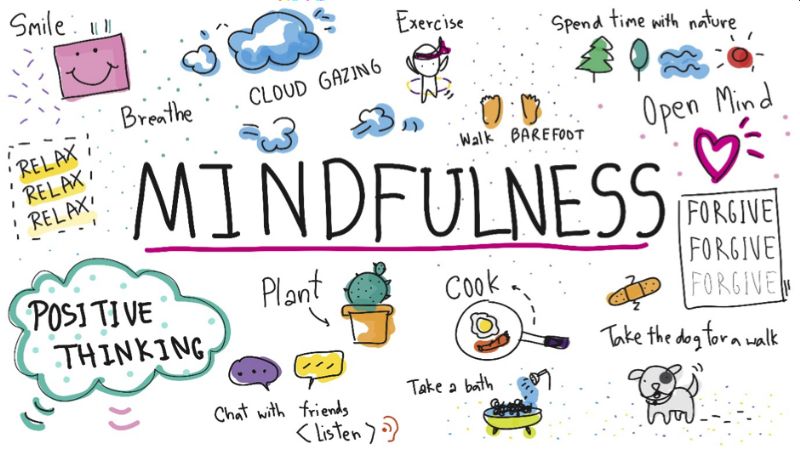 Smile
Breathe
CLOUD GAZING
Exercise
Walk BAREFOOT
Spend time with nature
Open Mind
RELAX
RELAX
RELAX
MINDFULNESS
FORGIVE
FORGIVE
FORGIVE
POSITIVE
THINKING
Plant
Chat with friends
<listen>
COOK
Take a bath
Take the dog for a walk